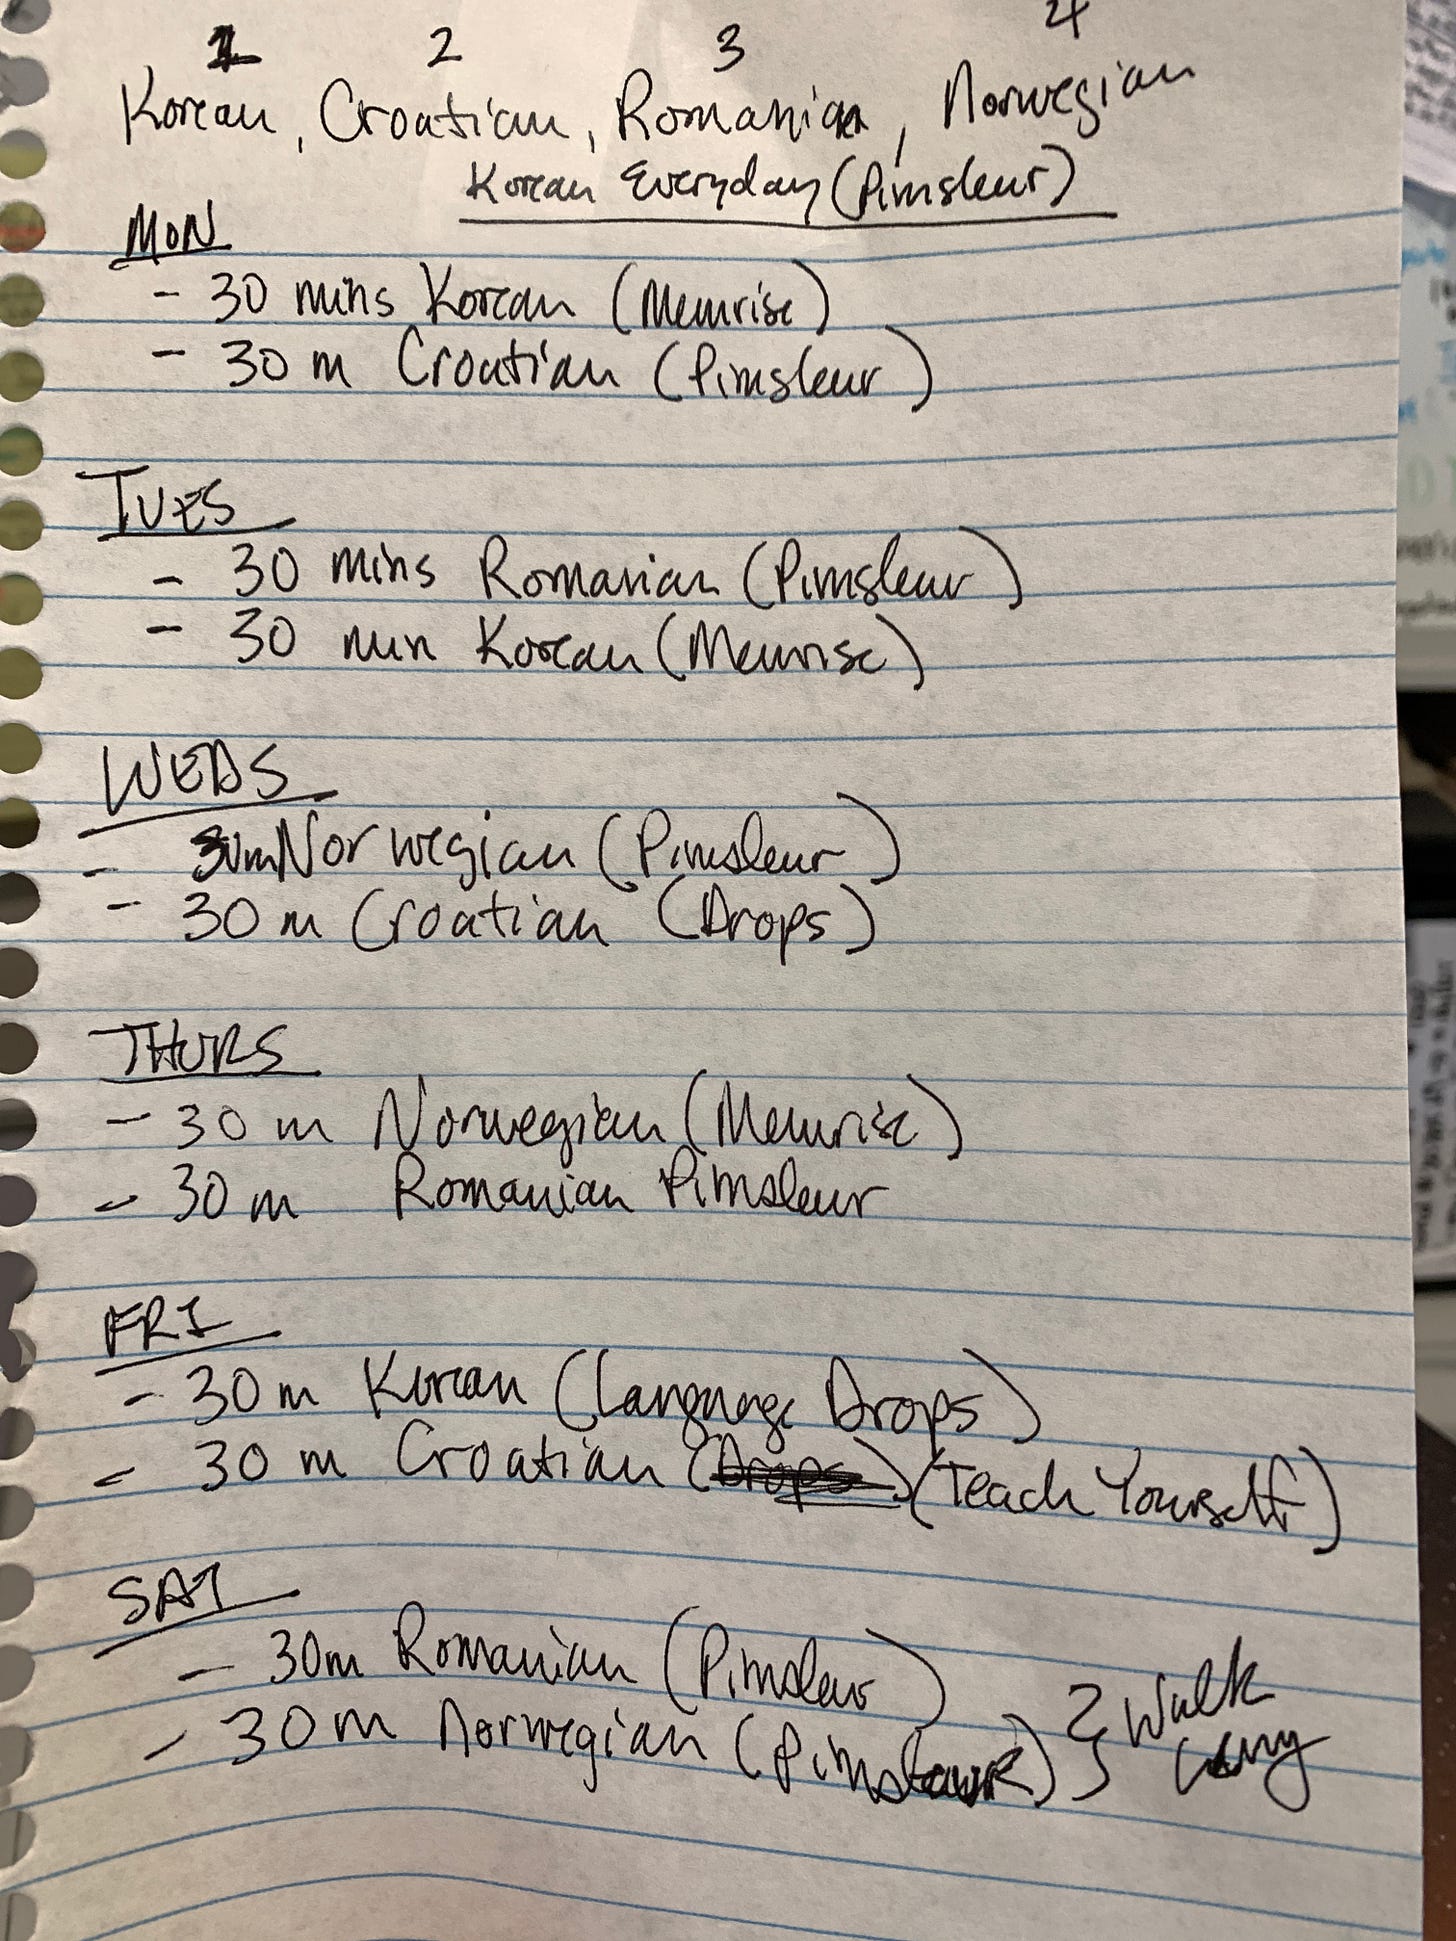 1 2 3 4
Korean, Croatian, Romanian, Norwegian
Korean Everyday (Pimsleur)
MON
- 30 mins Korean (Memrise)
- 30 m Croatian (Pimsleur)
TUES
- 30 mins Romanian (Pimsleur)
- 30 min Korean (Memrise)
WEDS
- 30m Norwegian (Pimsleur)
- 30 m Croatian (Drops)
THURS
- 30 m Norwegian (Memrise)
- 30 m Romanian Pimsleur
FRI
- 30 m Korean (Language Drops)
- 30 m Croatian (Drops) (Teach Yourself)
SAT
- 30m Romanian (Pimsleur)
- 30m Norwegian (Pimsleur) } Walk